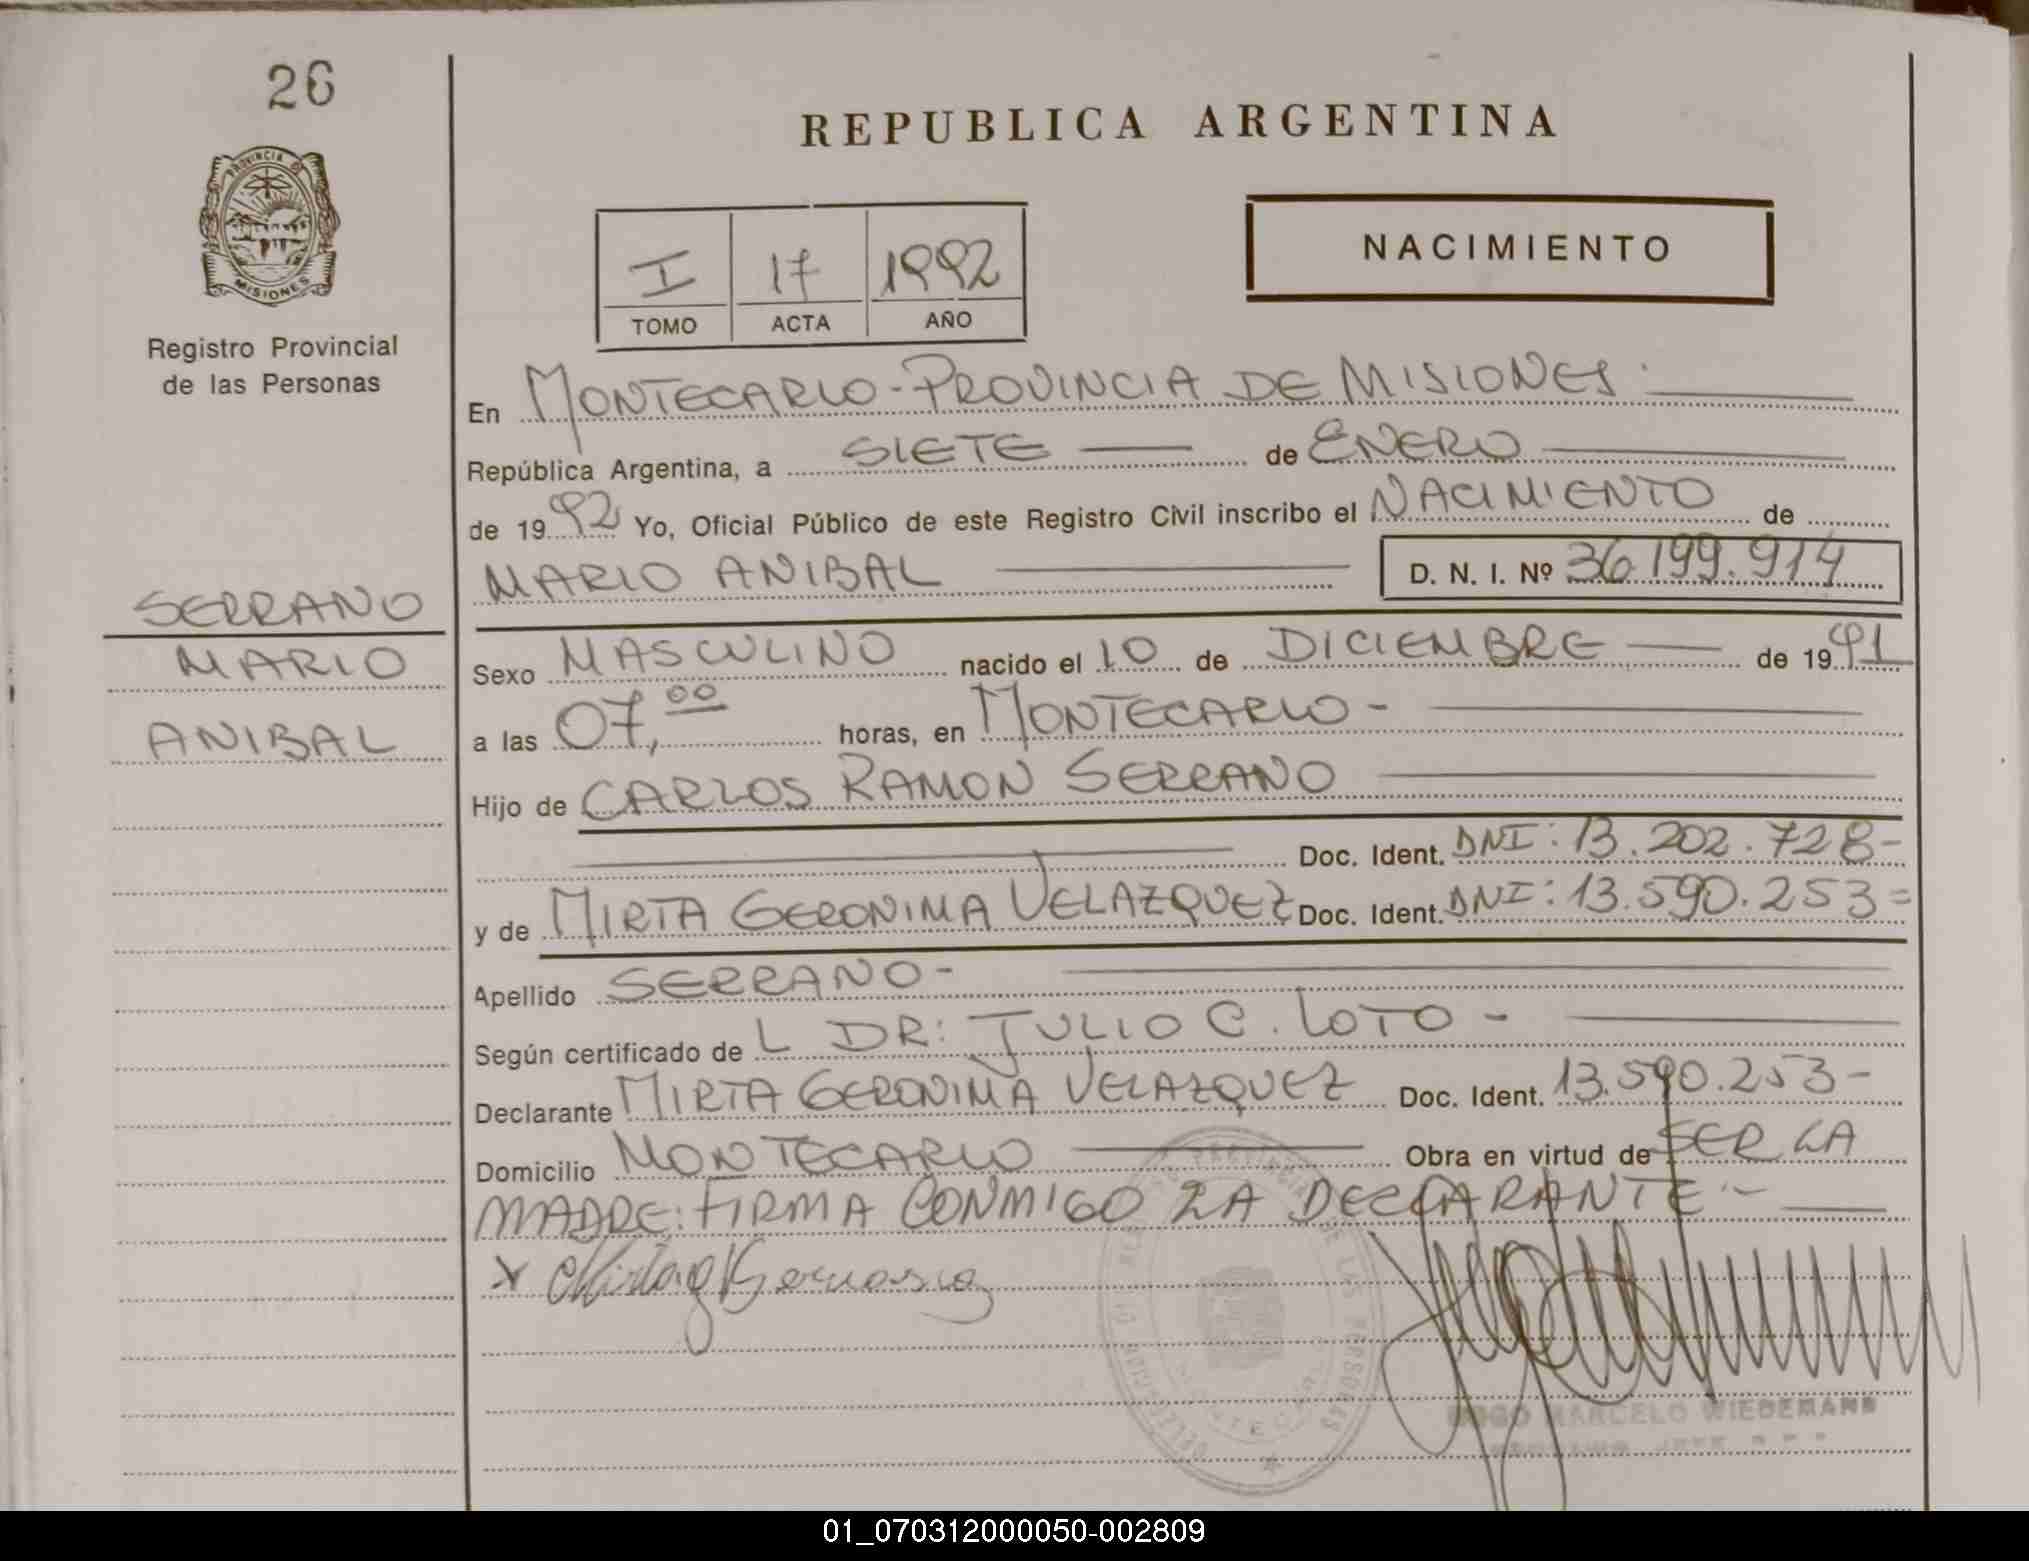 26
PROVINCIA DE
MISIONES
Registro Provincial
de las Personas
SERRANO
MARIO
ANIBAL
REPUBLICA ARGENTINA
I 17 1992
TOMO ACTA AÑO
NACIMIENTO
En MONTECARLO - PROVINCIA DE MISIONES
República Argentina, a SIETE de ENERO
de 1992 Yo, Oficial Público de este Registro Civil inscribo el NACIMIENTO de
MARIO ANIBAL D. N. I. Nº 36.199.914
Sexo MASCULINO nacido el 10 de DICIEMBRE de 1991
a las 07,00 horas, en MONTECARLO -
Hijo de CARLOS RAMON SERRANO
Doc. Ident. DNI: 13.202.728-
y de MIRTA GERONIMA VELAZQUEZ Doc. Ident. DNI: 13.590.253=
Apellido SERRANO-
Según certificado de L DR: JULIO C. LOTO -
Declarante MIRTA GERONIMA VELAZQUEZ Doc. Ident. 13.590.253-
Domicilio MONTECARLO Obra en virtud de SER LA
MADRE: FIRMA CONMIGO LA DECLARANTE.-
MARCELO WIEDEMANN
01_070312000050-002809